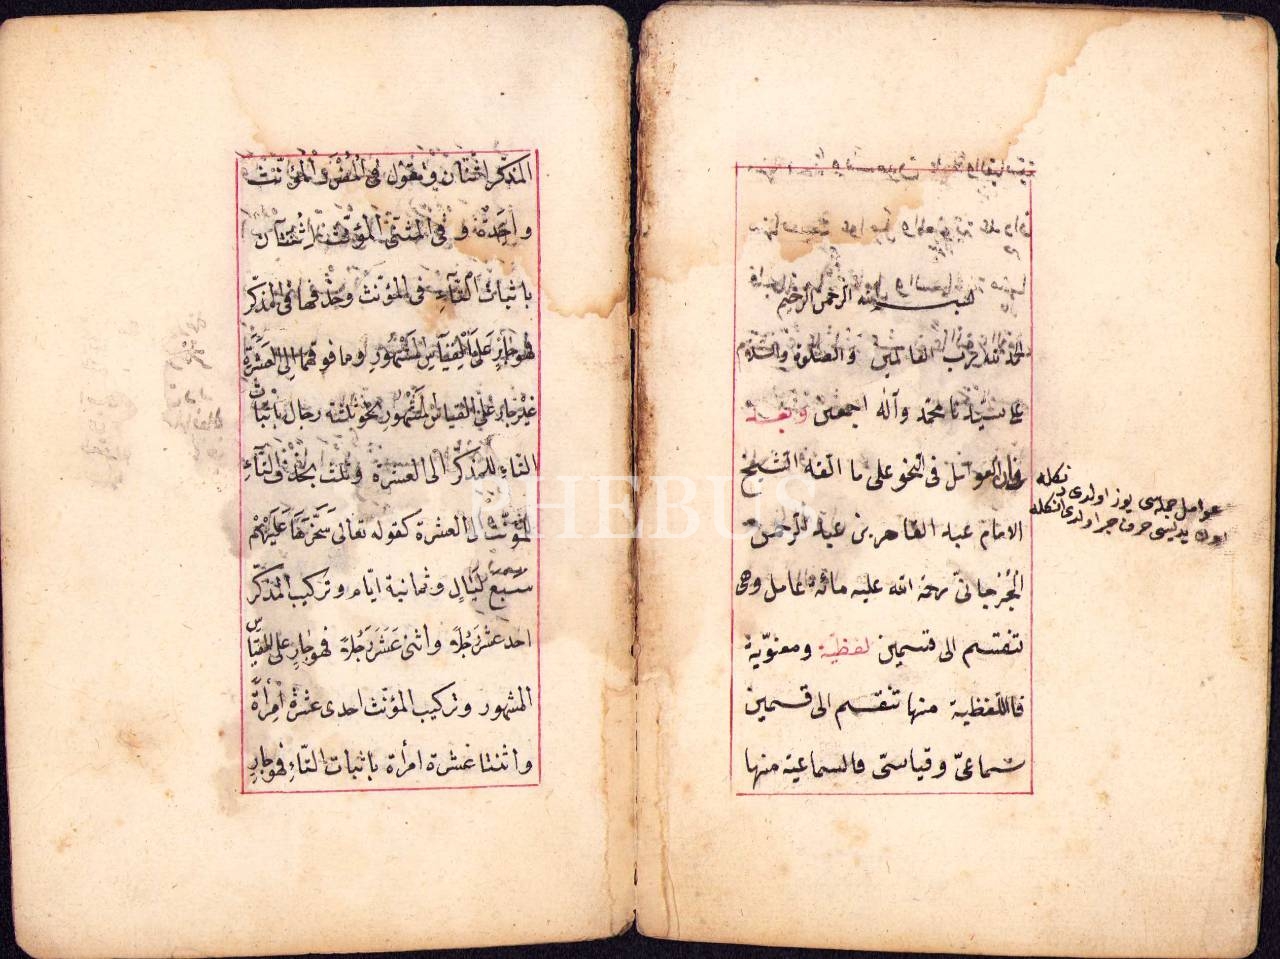 بسم الله الرحمن الرحيم
الحمد لله رب العالمين والصلوة والسلام
على سيدنا محمد وآله اجمعين وبعد
فان العوامل فى النحو على ما الفه الشيخ
الامام عبد القاهر بن عبد الرحمن
الجُرْجانىّ رحمة الله عليه مائة عامل وهى
تنقسم الى قسمين لفظيّة ومعنويّة
فاللفظية منها تنقسم الى قسمين
سماعىّ وقياسىّ فالسماعية منها
عوامل جمله‌سى يوز اولدى
يديسى حرف جر اولدى
المذكّر اثنان وتقول فى المفرد المؤنّث
واحدة وفى المثنّى المؤنّث اثنتان
باثبات التآء فى المؤنث وحذفها فى المذكر
فهو جارٍ على القياس المشهور وما فوقهما الى العشرة
غير جار على القياس المشهور نحو ثلثة رجال باثبات
التاء للمذكّر الى العشرة وثلث بحذف التآء
للمؤنّث الى العشرة كقوله تعالى سَخَّرَهَا عَلَيْهِمْ
سَبْعَ لَيَالٍ وثمانية ايّام وتركيب المذكّر
احد عشر رَجُلاً واثنى عَشَرَ رَجُلاً فهو جارٍ على القياس
المشهور وتركيب المؤنّث احدى عشرة امرأةً
واثنتا عشرة امرأة باثبات التّاءِ فهو جارٍ
PHEBUS